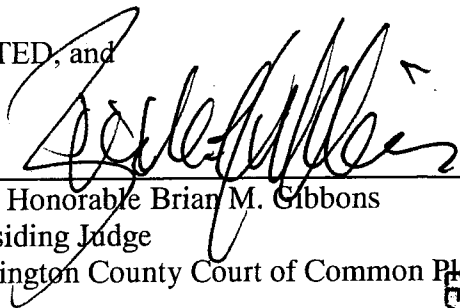 TED, and
Honorable Brian M. Gibbons
siding Judge
ington County Court of Common Pl